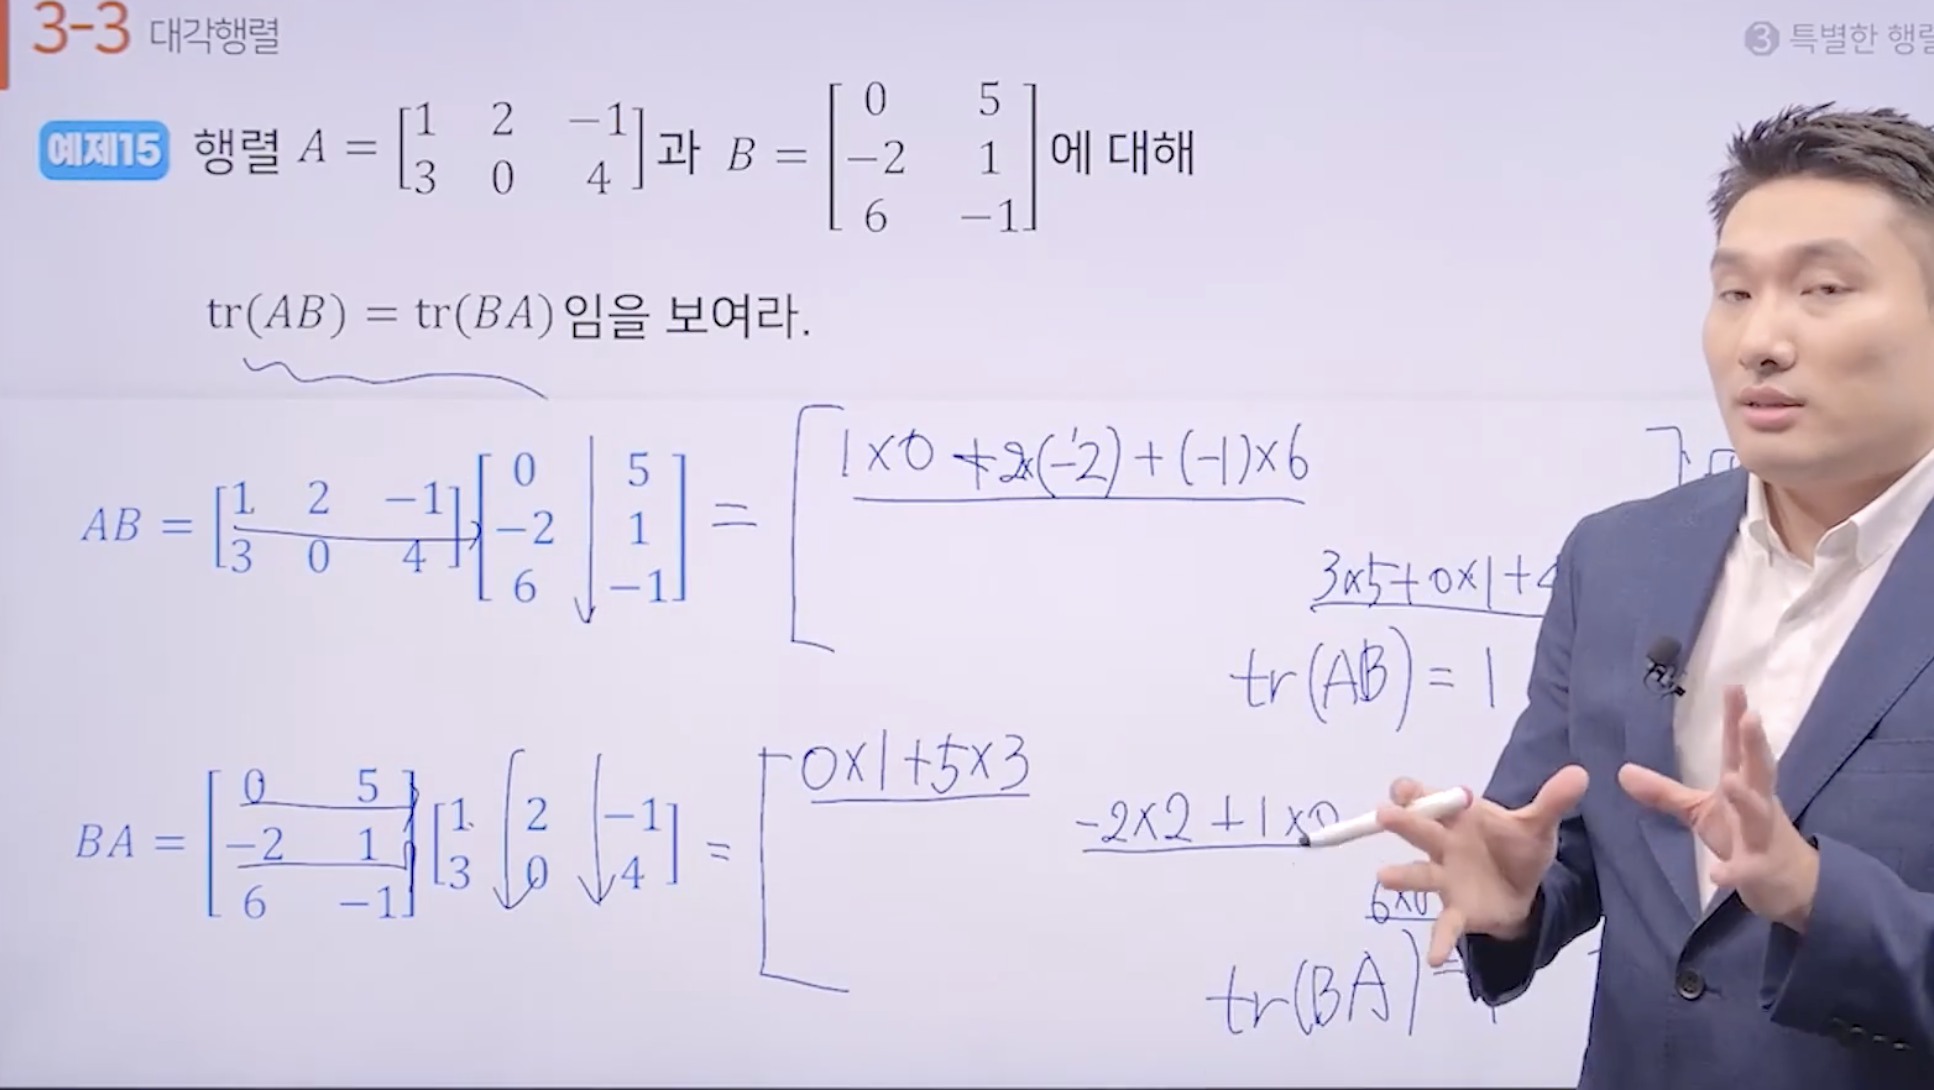 3-3 대각행렬
③ 특별한 행렬
예제15 행렬 A = [1 2 −1; 3 0 4] 과 B = [0 5; −2 1; 6 −1] 에 대해
tr(AB) = tr(BA) 임을 보여라.
AB = [1 2 −1; 3 0 4] [0 5; −2 1; 6 −1] = [ 1×0 + 2×(-2) + (-1)×6
3×5+0×1+4
tr(AB) = 1
BA = [0 5; −2 1; 6 −1] [1 2 −1; 3 0 4] = [ 0×1+5×3
-2×2+1×0
6×
tr(BA) =